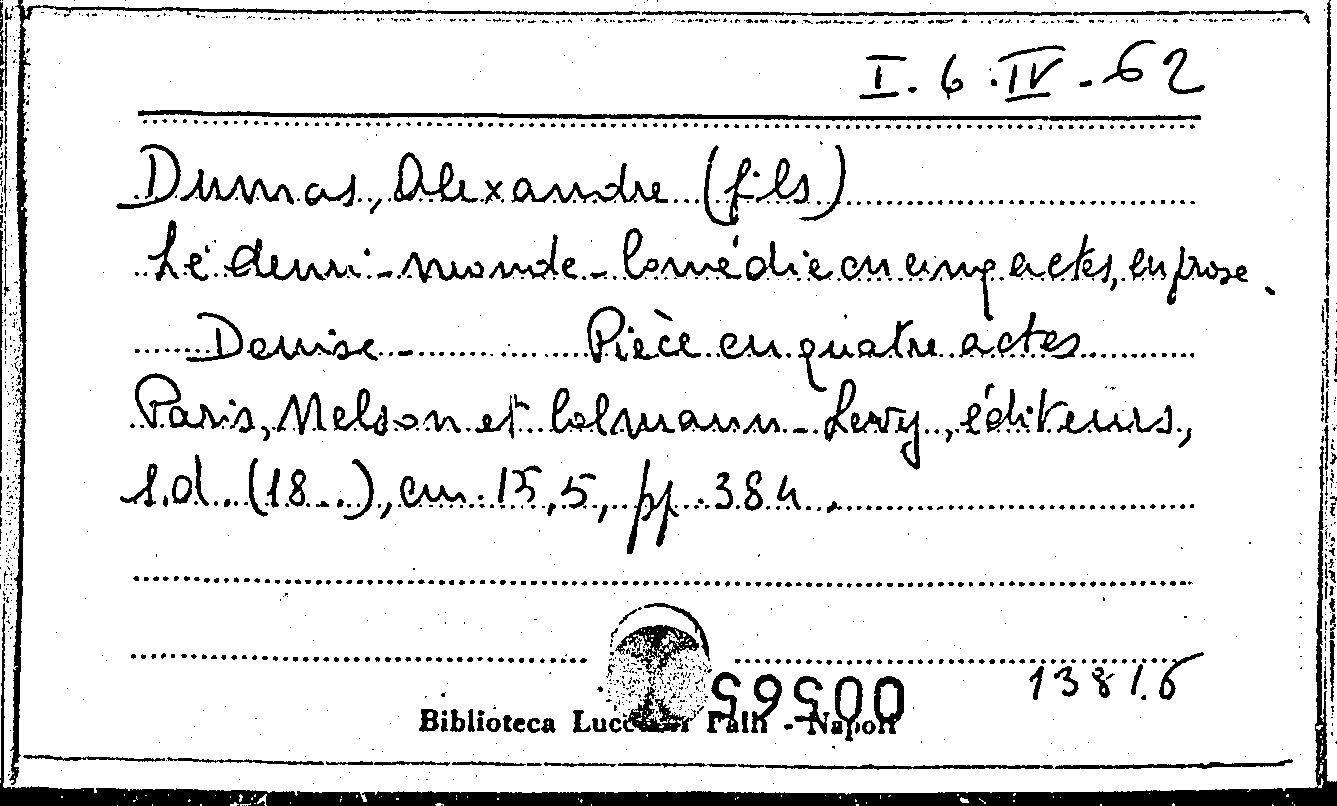 I. 6 .IV. 62
Dumas, Alexandre (fils)
Le demi-monde - Comédie en cinq actes, en prose.
Denise - Pièce en quatre actes
Paris, Nelson et Calmann-Levy, éditeurs,
s.d. (18..), cm. 15,5, pp. 384.
1381.6
00565
Biblioteca Lucchesi Palli - Napoli